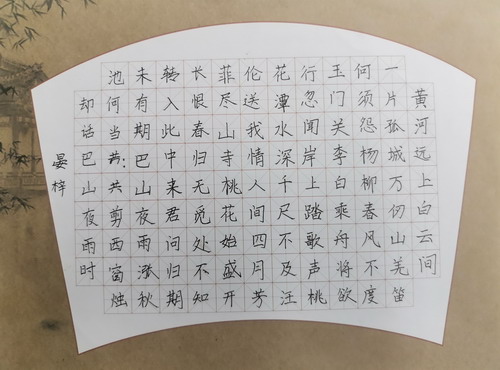 黄河远上白云间
一片孤城万仞山羌笛
何须怨杨柳春风不度
玉门关李白乘舟将欲
行忽闻岸上踏歌声桃
花潭水深千尺不及汪
伦送我情人间四月芳
菲尽山寺桃花始盛开
长恨春归无觅处不知
转入此中来君问归期
未有期巴山夜雨涨秋
池何当共剪西窗烛
却话巴山夜雨时
晏梓